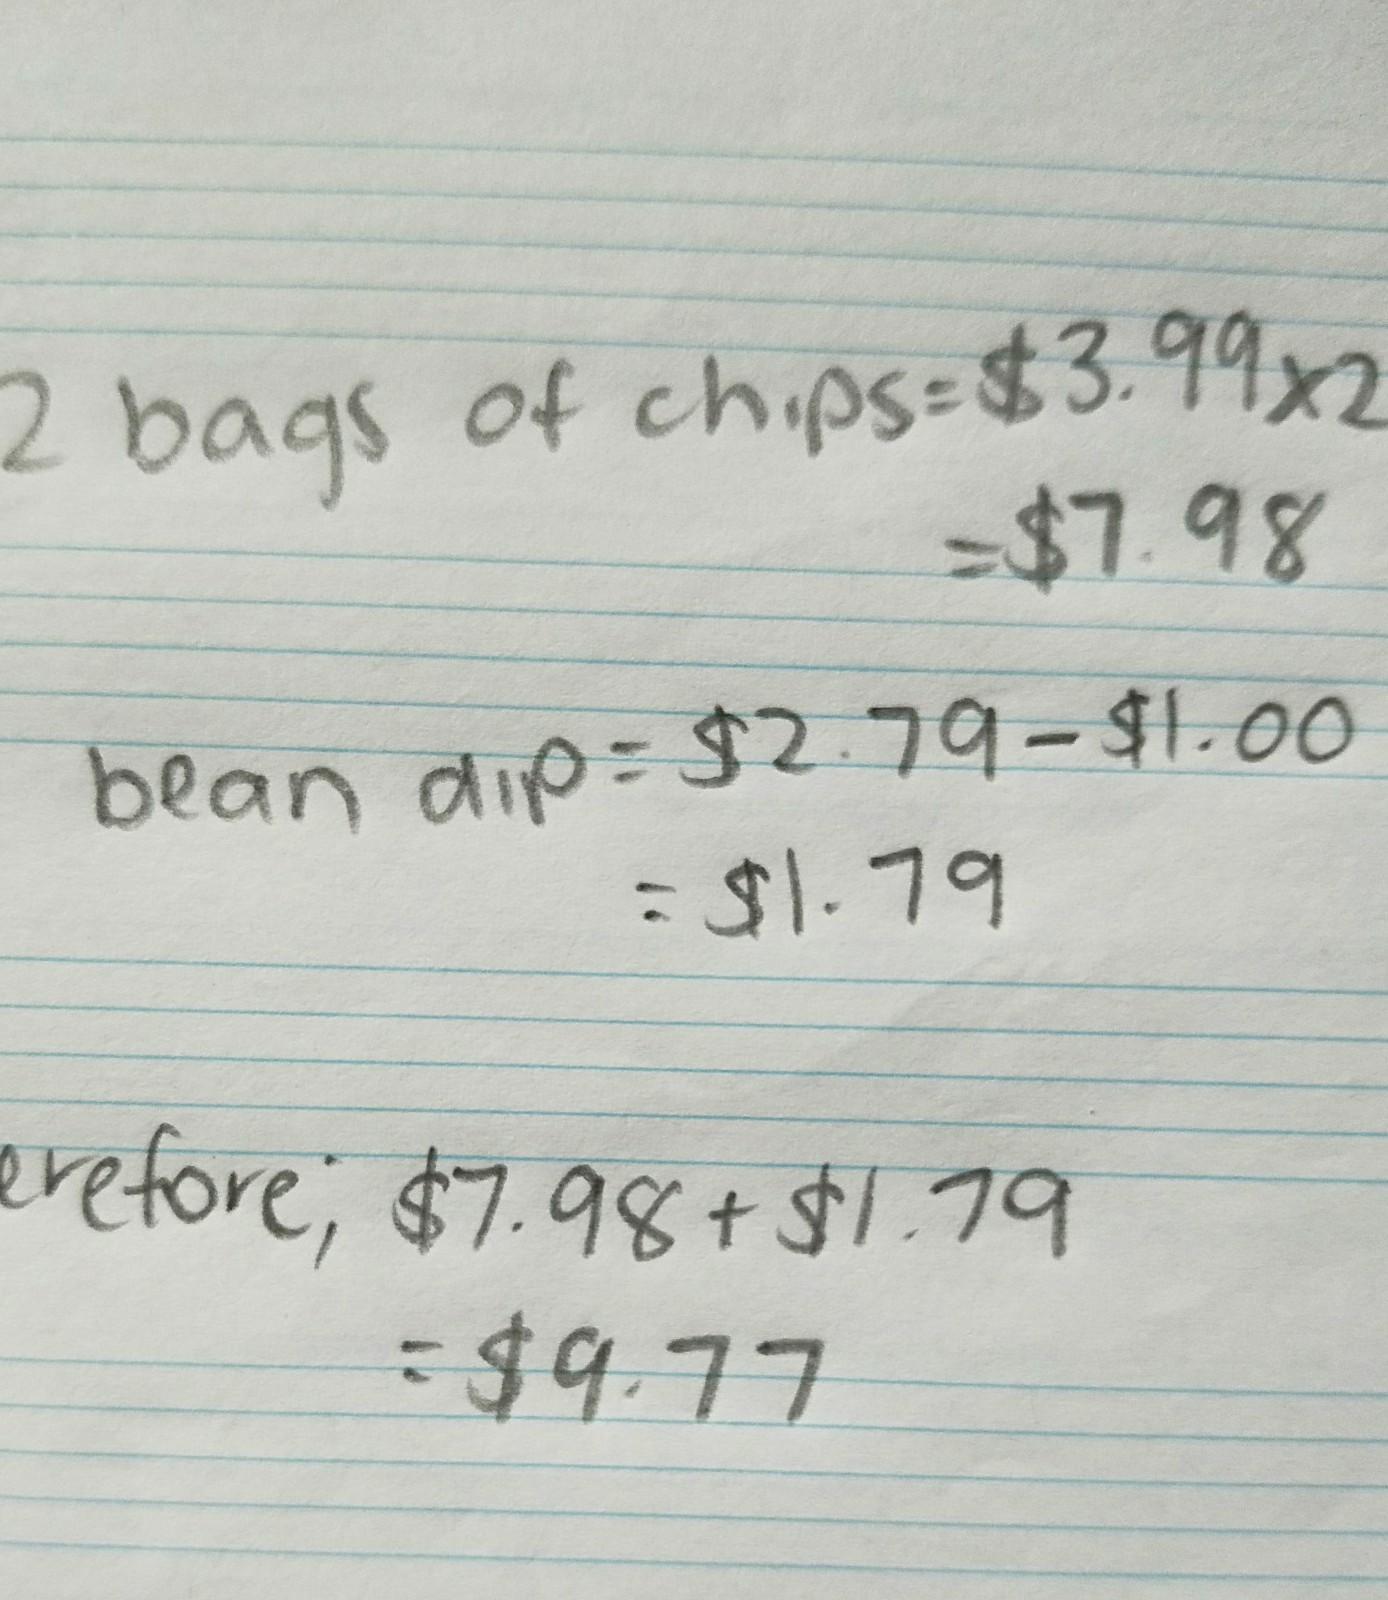 2 bags of chips = $3.99 x 2
= $7.98
bean dip = $2.79 - $1.00
= $1.79
erefore; $7.98 + $1.79
= $9.77